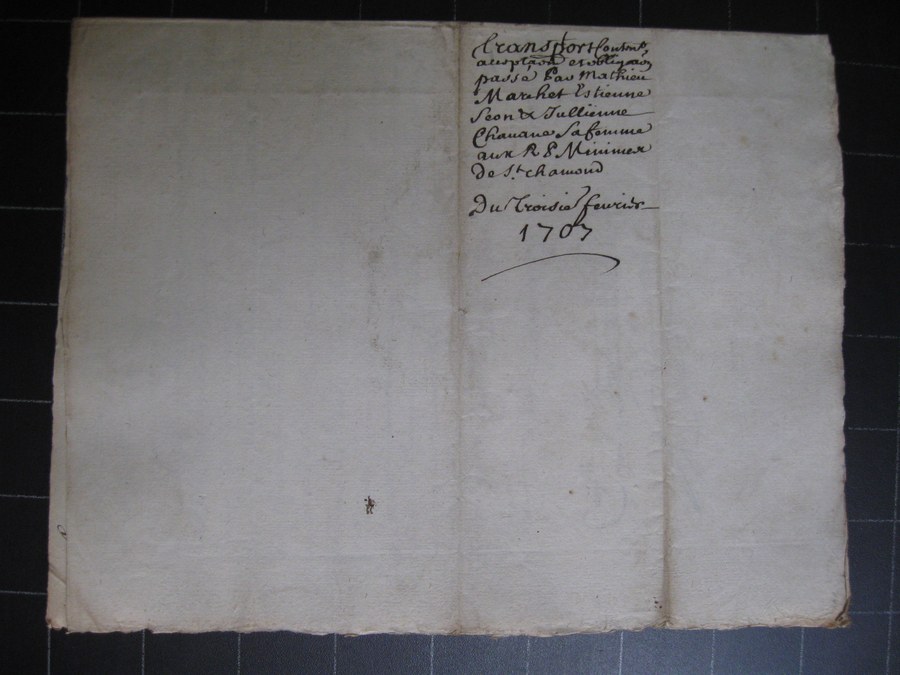 Transport Conten.t
acceptaon et obligaon
passé Par Mathieu
Marchet Estienne
Seon & Jullienne
Chavane Sa femme
aux R P Minimes
De S.t chamond
Du Troisie fevrier
1707